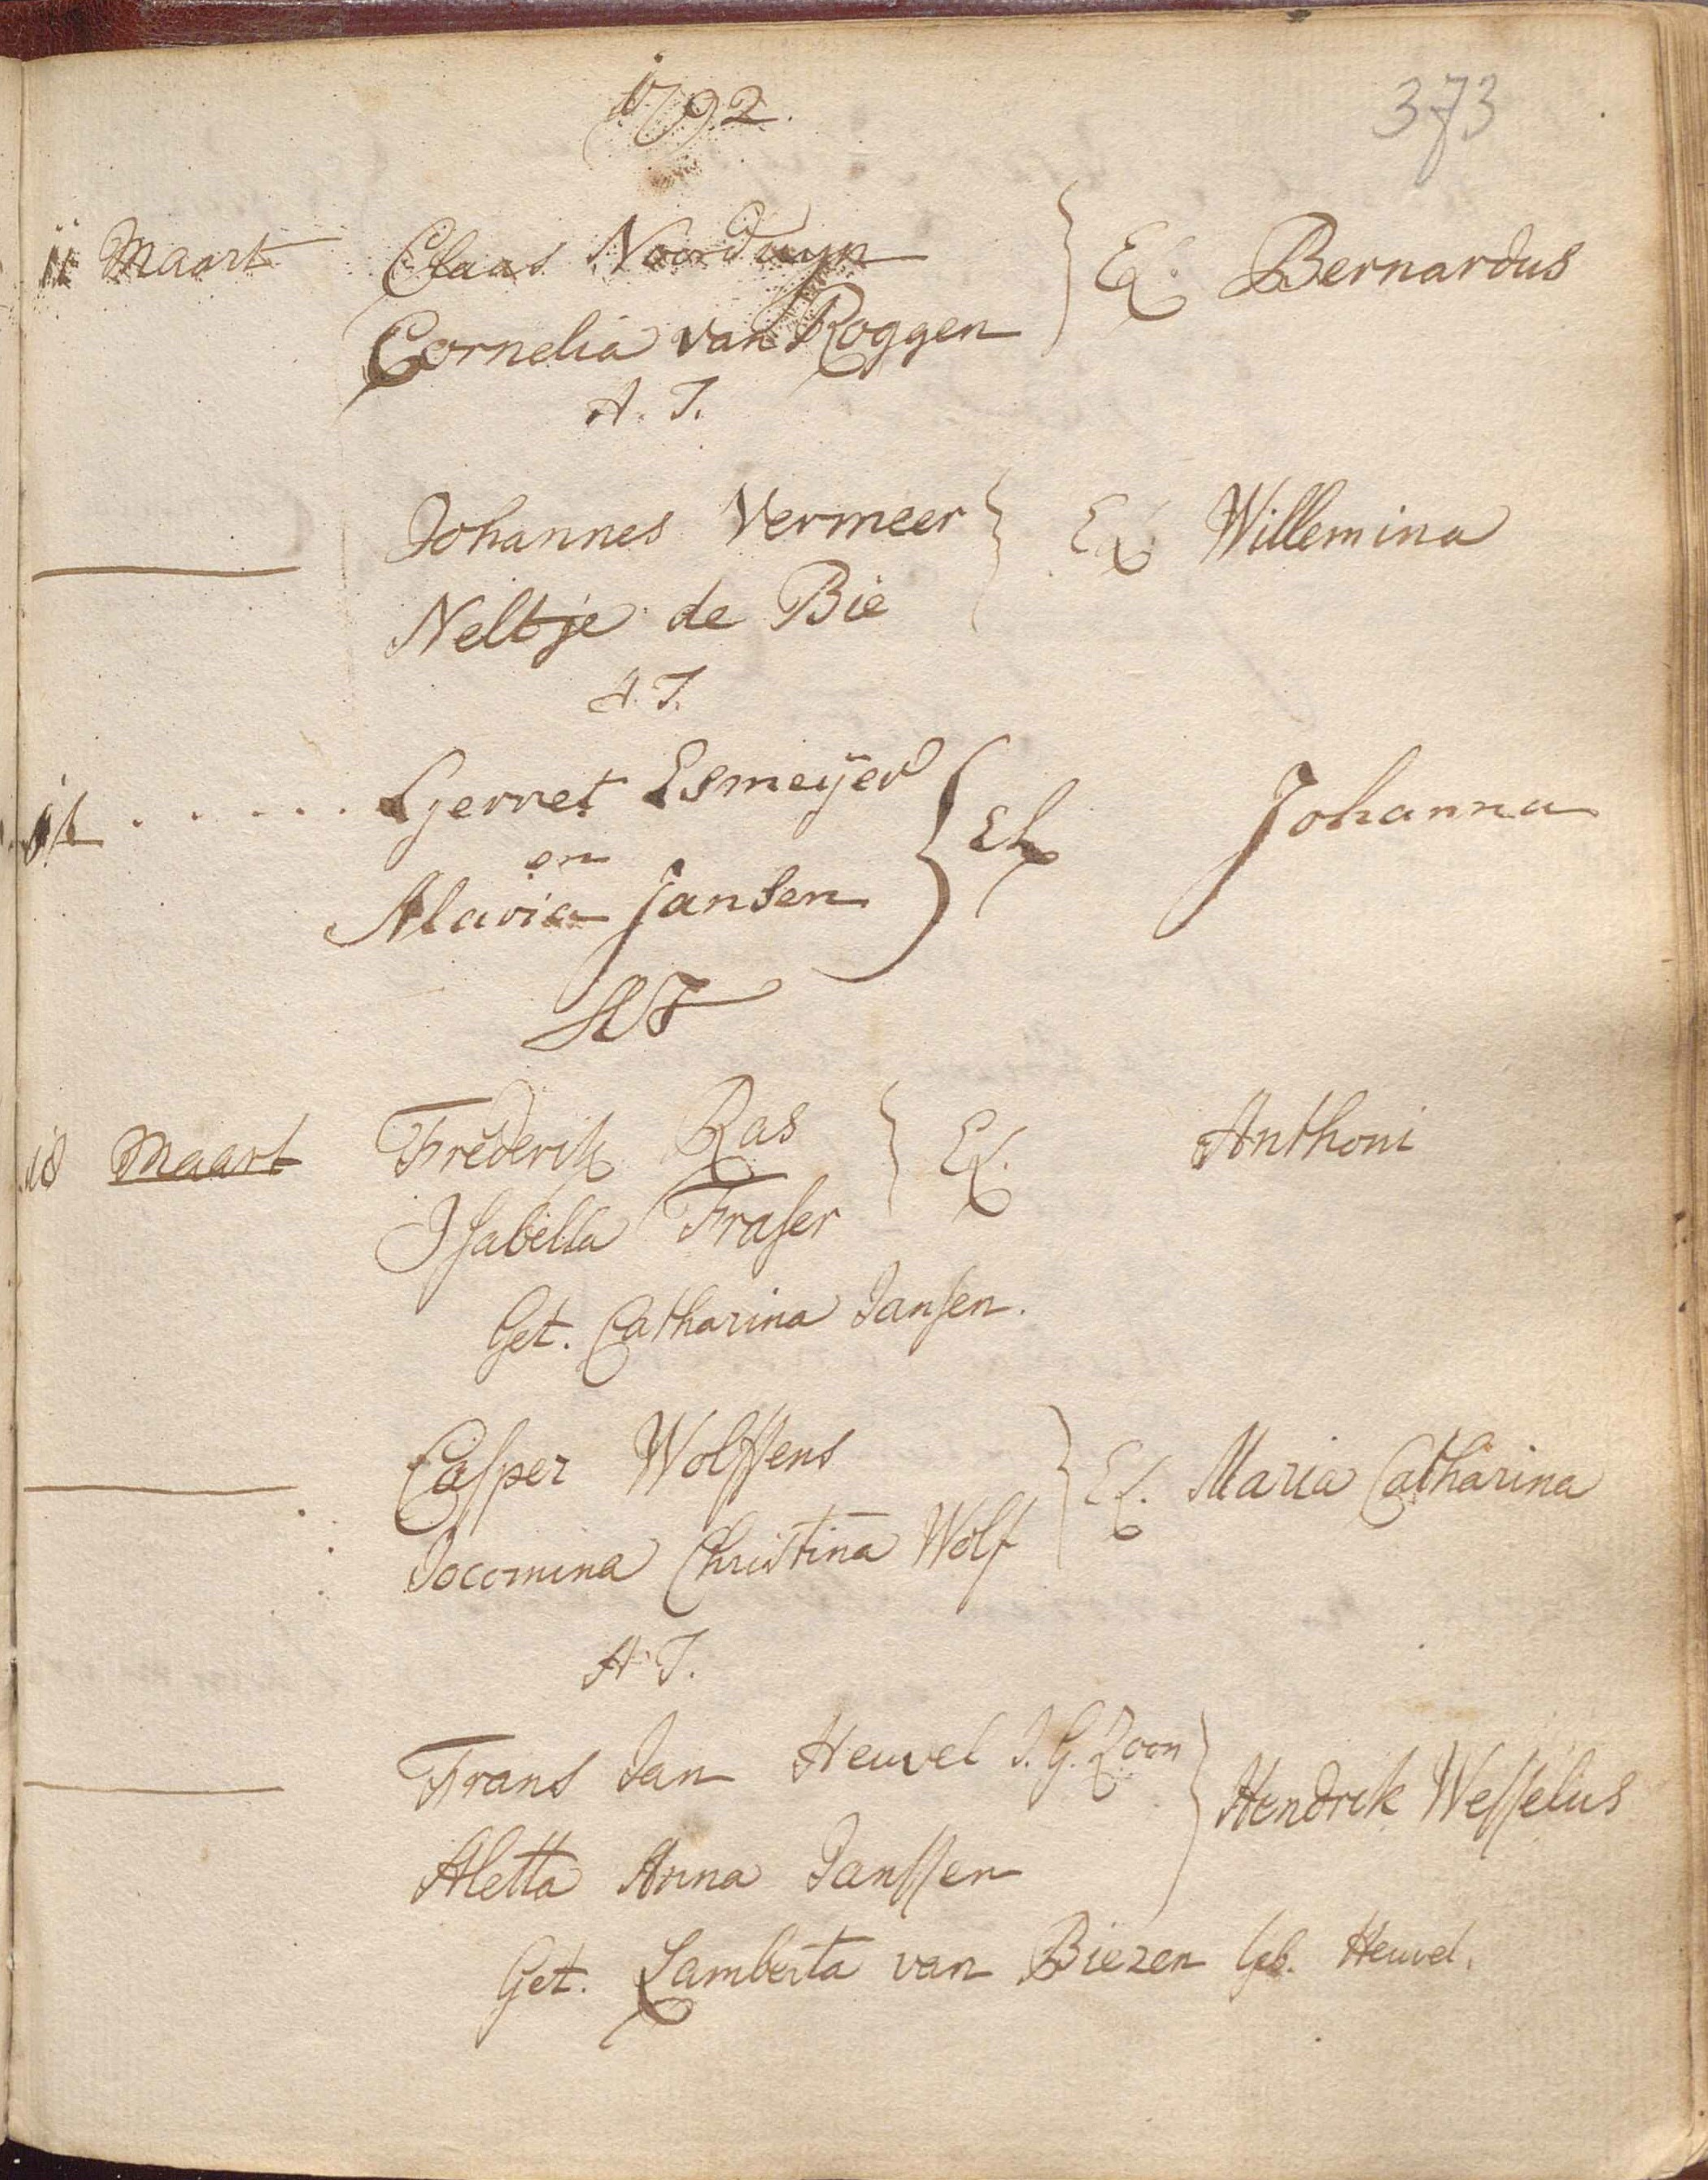 1792.
373
11 Maart Claas Noorduyn } Ex. Bernardus
Cornelia van Roggen
A. T.
Johannes Vermeer } Ex Willemina
Neltje de Bie
A. T.
Gerret Esmeijer } Ex Johanna
en
Maria Jansen
AT
18 Maart Frederik Ras } Ex. Anthoni
Isabella Fraser
Get. Catharina Jansen.
Casper Wolffens } Ex. Maria Catharina
Jocomina Christina Wolf
A. T.
Frans Jan Heuvel J. G. Zoon } Hendrik Wesselus
Aletta Anna Janssen
Get. Lamberta van Biezen Geb. Heuvel.